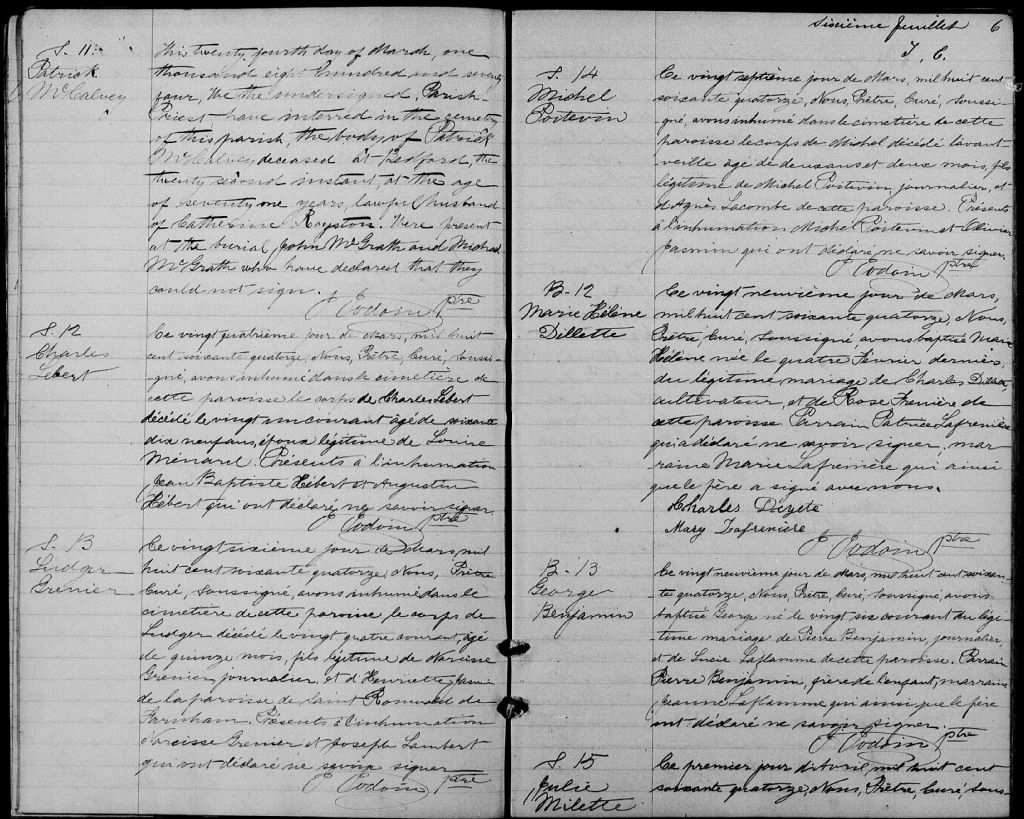 S. 11.
Patrick
McCalvey
This twenty fourth day of March, one
thousand eight hundred and seventy
four, We the undersigned, Parish-
Priest have interred in the cemetery
of this parish, the body of Patrick
McCalvey deceased at Bedford, the
twenty second instant, at the age
of seventy one years, lawful husband
of Catherine Royston. Were present
at the burial, John McGrath and Michael
McGrath who have declared that they
could not sign.
J Jodoin ptre
S. 12
Charles
Lebert
Ce vingt quatrième jour de Mars, mil huit
cent soixante quatorze, Nous, Prêtre, Curé, soussi-
-gné, avons inhumé dans le cimetière de
cette paroisse le corps de Charles Lebert
décédé le vingt un courant âgé de soixante
dix neuf ans, époux légitime de Louise
Ménard. Présents à l'inhumation
Jean Baptiste Hébert et Augustin
Hébert qui ont déclaré ne savoir signer.
J Jodoin ptre
S. 13
Ludger
Grenier
Ce vingt sixième jour de Mars, mil
huit cent soixante quatorze, Nous, Prêtre
Curé, soussigné, avons inhumé dans le
cimetière de cette paroisse le corps de
Ludger décédé le vingt quatre courant, âgé
de quinze mois, fils légitime de Narcisse
Grenier, journalier, et d'Henriette
de la paroisse de Saint Romuald de
Farnham. Présents à l'inhumation
Narcisse Grenier et Joseph Lambert
qui ont déclaré ne savoir signer
J Jodoin ptre
Sixième feuillet 6
J. C.
S. 14
Michel
Poitevin
Ce vingt septième jour de Mars, mil huit cent
soixante quatorze, Nous, Prêtre, Curé, soussi-
gné, avons inhumé dans le cimetière de cette
paroisse le corps de Michel décédé l'avant
veille âgé de deux ans et deux mois, fils
légitime de Michel Poitevin, journalier, et
d'Agnès Lacombe de cette paroisse. Présents
à l'inhumation Michel Poitevin et Olivier
Jasmin qui ont déclaré ne savoir signer
J Jodoin ptre
B-12
Marie Hélène
Dillette
Ce vingt neuvième jour de Mars,
mil huit cent soixante quatorze, Nous,
Prêtre, Curé, soussigné avons baptisé Marie
Hélène née le quatre Février dernier,
du légitime mariage de Charles
cultivateur, et de Rose Frenière de
cette paroisse. Parrain Patrice Lafrenière
qui a déclaré ne savoir signer, mar-
raine Marie Lafrenière qui ainsi
que le père a signé avec nous.
Charles Dizete
Mary Lafreniere
J Jodoin ptre
B-13
George
Benjamin
Ce vingt neuvième jour de Mars, mil huit cent soixan-
te quatorze, Nous, Prêtre, Curé, soussigné avons
baptisé George né le vingt six courant du légi-
time mariage de Pierre Benjamin, journalier,
et de Lucie Laflamme de cette paroisse. Parrain
Pierre Benjamin, frère de l'enfant, marraine
Jeanne Laflamme qui ainsi que le père
ont déclaré ne savoir signer.
J. Jodoin ptre
S 15
Julie
Milette
Ce premier jour d'Avril mil huit cent
soixante quatorze, Nous, Prêtre, Curé, sous-